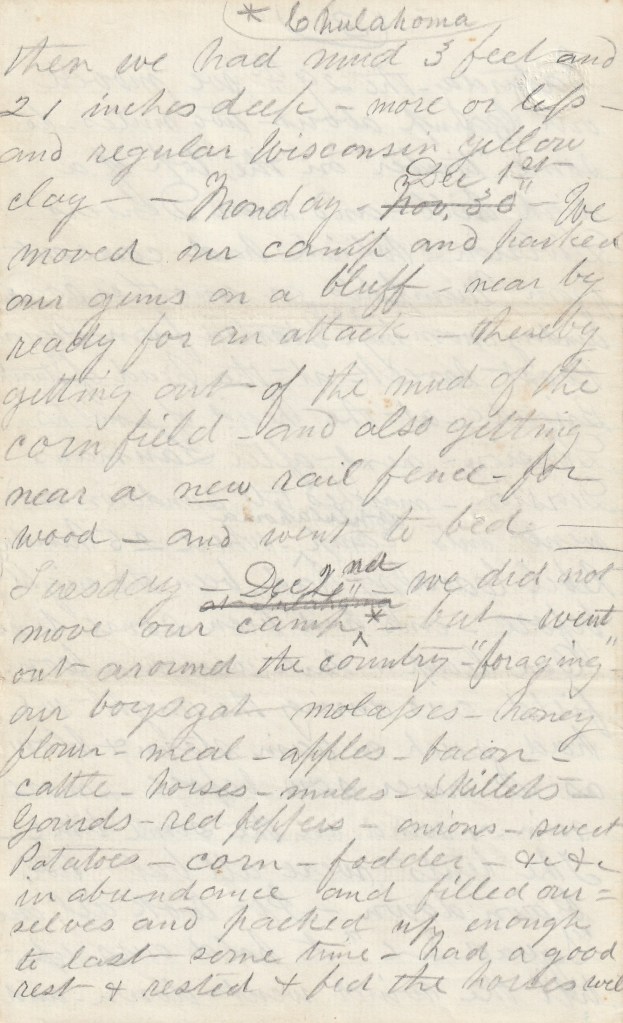 * Chulahoma
then we had mud 3 feet and
21 inches deep - more or less -
and regular Wisconsin yellow
clay - - Monday - Nov. 30 Dec 1st - We
moved our camp and parked
our guns on a bluff - near by
ready for an attack - thereby
getting out of the mud of the
corn field - and also getting
near a new rail fence - for
wood - and went to bed
Tuesday - Dec 2nd - we did not
move our camp * - but went
out around the country - "foraging"
our boys got molasses - honey
flour - meal - apples - bacon -
cattle - horses - mules - skillets -
Gourds - red peppers - onions - sweet
Potatoes - corn - fodder - &c &c
in abundance and filled our=
selves and packed up enough
to last some time - had a good
rest & rested & fed the horses well